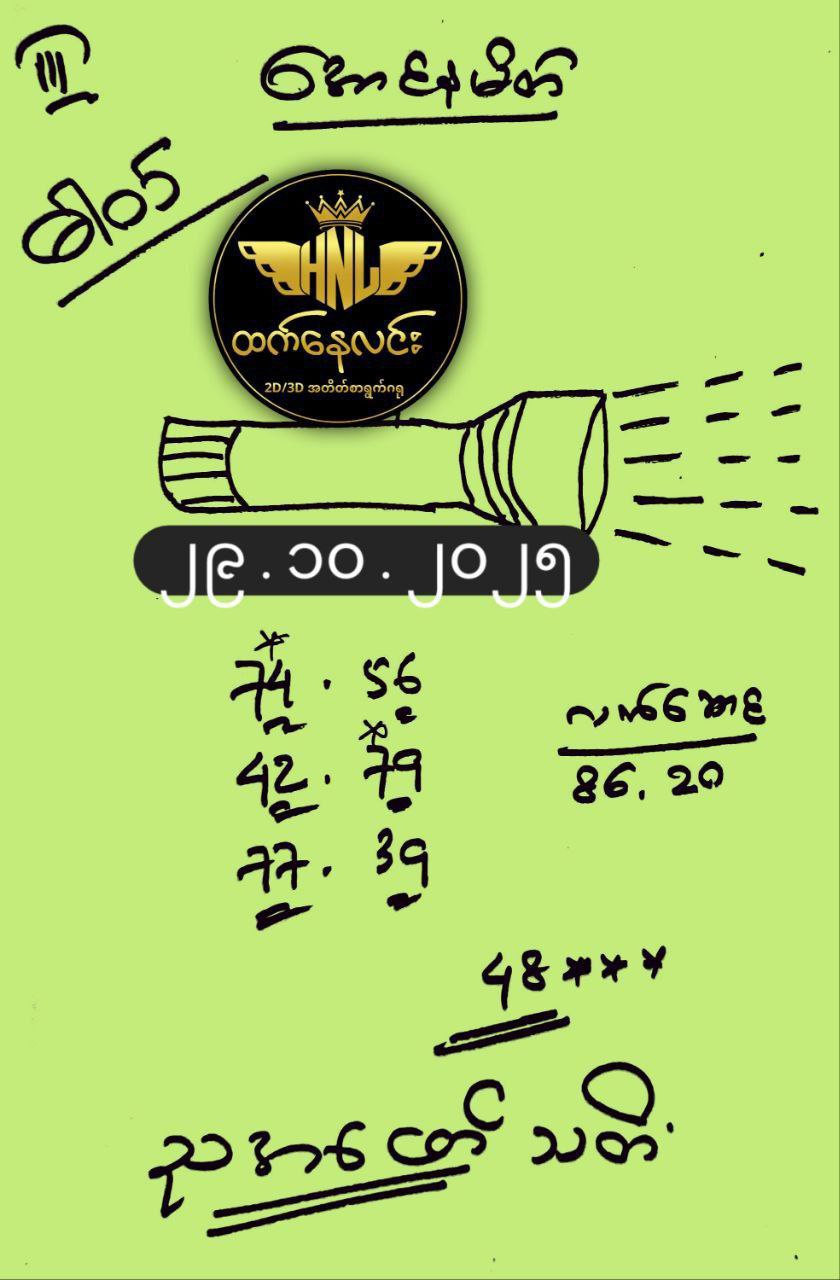 အောင်နမိတ်
ဓါတ်
HNL
ထက်နေလင်း
2D/3D အတိတ်စာရွက်ဂရု
၂၉.၁၀.၂၀၂၅
74. 56
42. 79
77. 39
လက်ဆောင်
86. 20
48***
ညအမှောင် သတိ